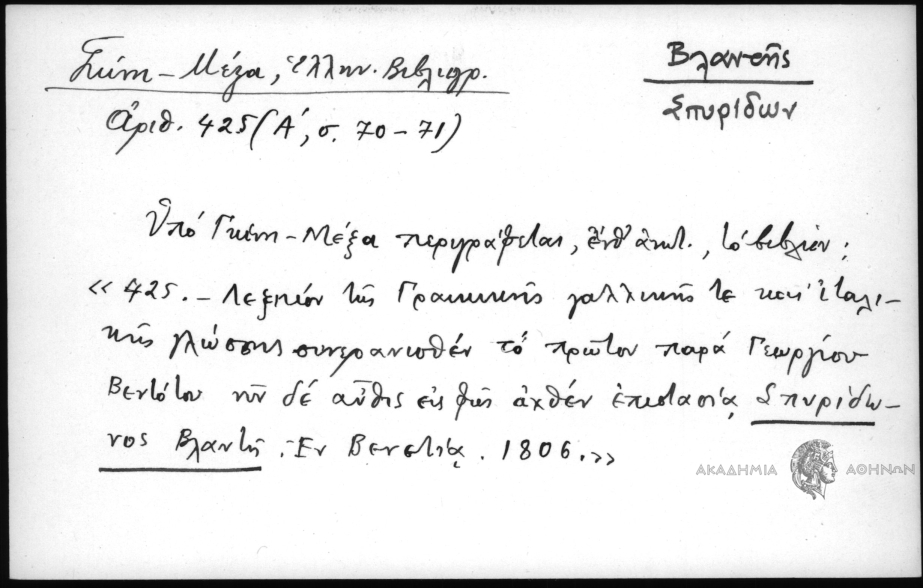 Γκίνη – Μέξα, Ἑλλην. Βιβλιογρ.
Ἀριθ. 425 (Α΄, σ. 70 – 71)
Βλαντῆς
Σπυρίδων
Ὑπό Γκίνη – Μέξα περιγράφεται, ἐνθ' ἀνωτ., τό βιβλίον:
« 425. – Λεξικόν τῆς Γραικικῆς γαλλικῆς τε καί ἰταλι-
κῆς γλώσσης συνερανισθέν τό πρῶτον παρά Γεωργίου
Βεντότου νῦν δέ αὖθις εἰς φῶς ἀχθέν ἐπιστασίᾳ Σπυρίδω-
νος Βλαντῆ. Ἐν Βενετίᾳ. 1806.»
ΑΚΑΔΗΜΙΑ ΑΘΗΝΩΝ